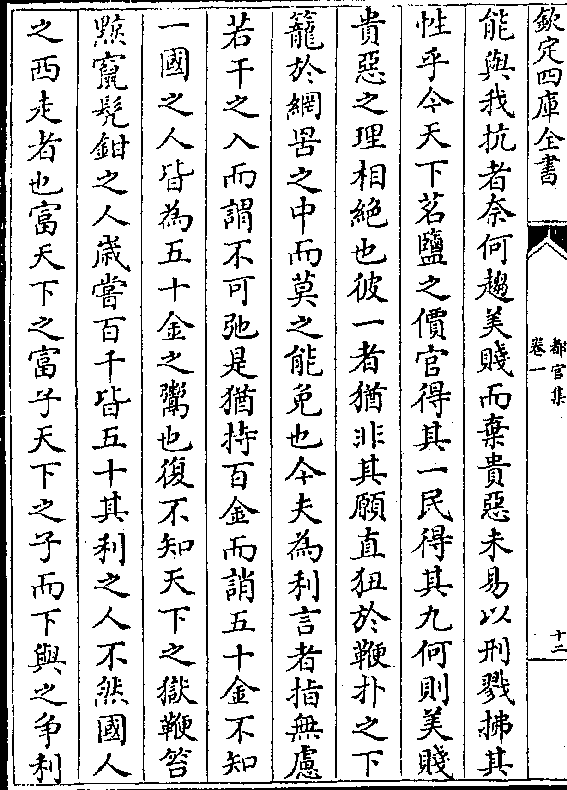 欽定四庫全書
都官集
卷一
十二
能與我抗者奈何趨美賤而棄貴惡未易以刑戮拂其
性乎今天下茗鹽之價官得其一民得其九何則美賤
貴惡之理相絶也彼一者猶非其願直狃於鞭扑之下
籠於網罟之中而莫之能免也今夫為利言者指無慮
若干之入而謂不可弛是猶持百金而誚五十金不知
一國之人皆為五十金之鬻也復不知天下之獄鞭笞
黥竄髡鉗之人嵗嘗百千皆五十其利之人不然國人
之西走者也富天下之富子天下之子而下與之争利